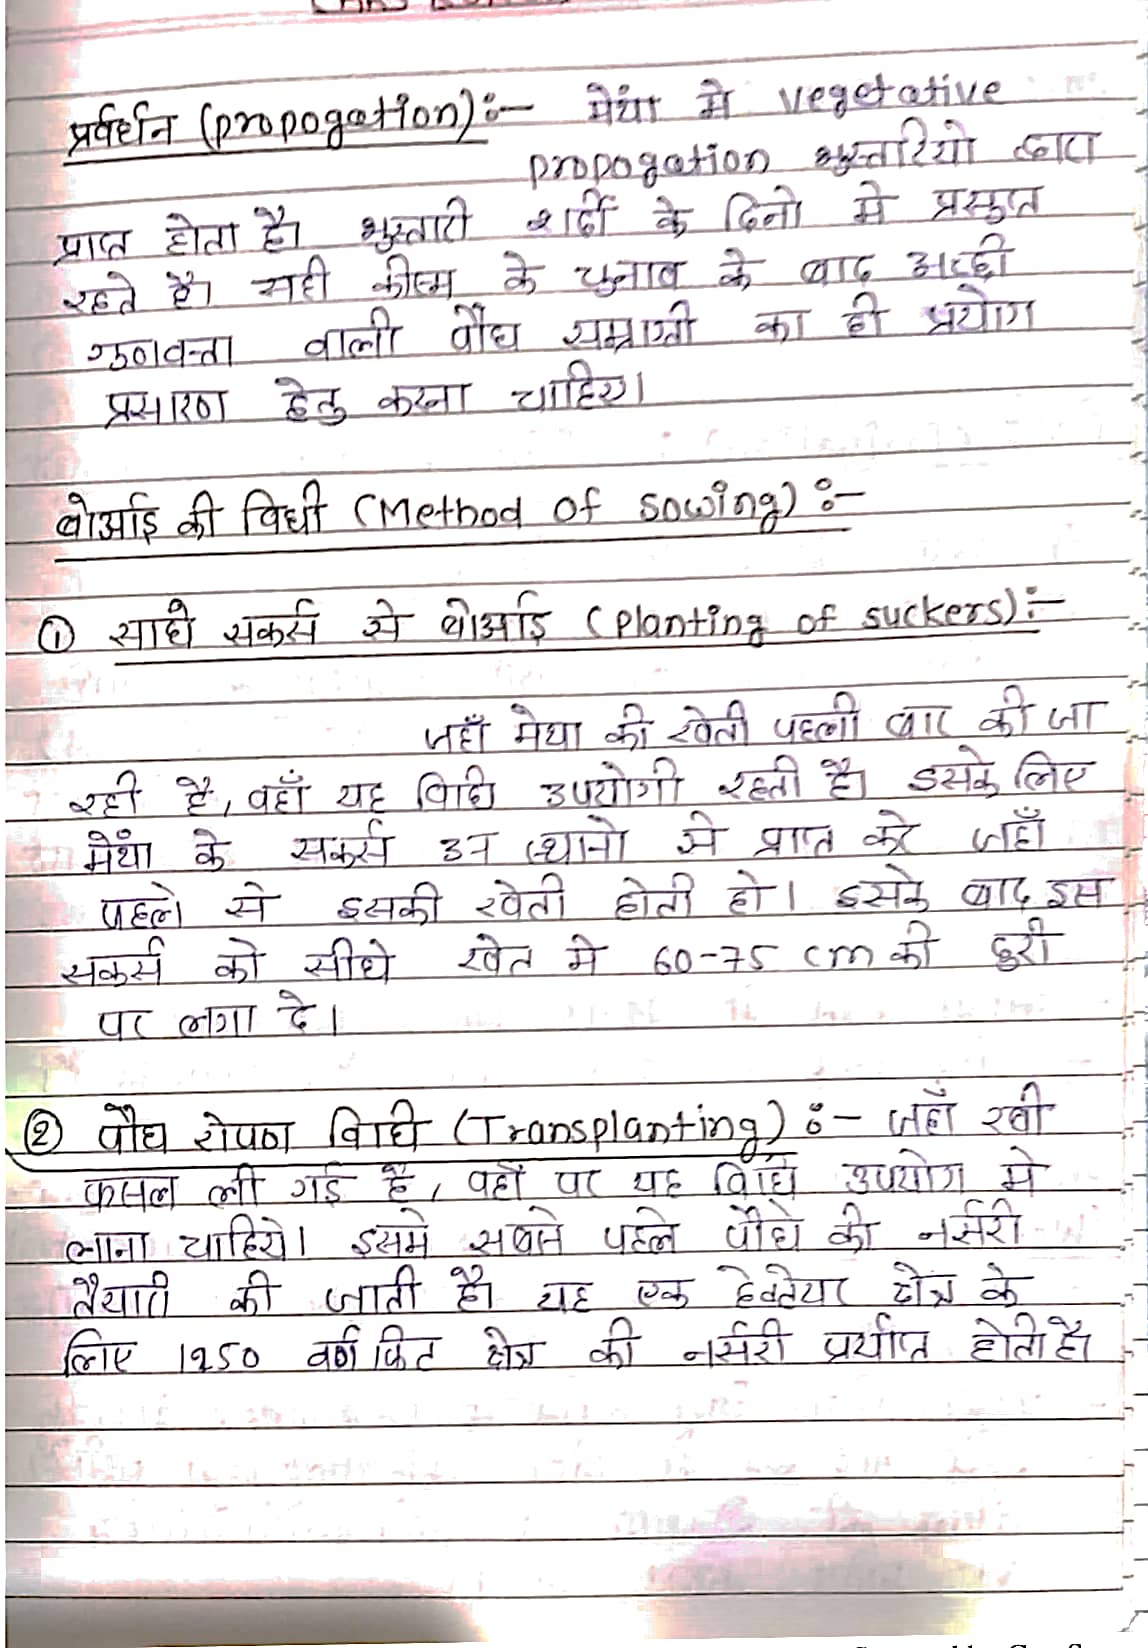 प्रर्वर्धन (propogation):- मेंथा मे vegetative
propogation भुस्तारियो द्वारा
प्राप्त होता है। भुस्तारी शर्दी के दिनो मे प्रसुप्त
रहते है। सही कीस्म के चुनाव के बाद अच्छी
गुणवन्ता वाली पौध सामग्री का ही प्रयोग
प्रसारण हेतु करना चाहिए।
बोआई की विधी (Method of sowing) :-
① साधे सकर्स से बोआई (planting of suckers):-
जहाँ मेथा की खेती पहली बार की जा
रही है, वहाँ यह विधि उपयोगी रहती है। इसके लिए
मेंथा के सकर्स उन स्थानो से प्राप्त करे जहाँ
पहले से इसकी खेती होती हो। इसके बाद इस
सकर्स को सीधे खेत मे 60-75 cm की दुरी
पर लगा दे।
② पौध रोपण विधि (Transplanting) :- जहाँ रबी
फसल ली गई है, वहाँ पर यह विधि उपयोग मे
लाना चाहिये। इसमे सबसे पहले पौधे की नर्सरी
तैयारी की जाती है। यह एक हेक्टेयर क्षेत्र के
लिए 1250 वर्ग फिट क्षेत्र की नर्सरी प्रर्याप्त होती है।